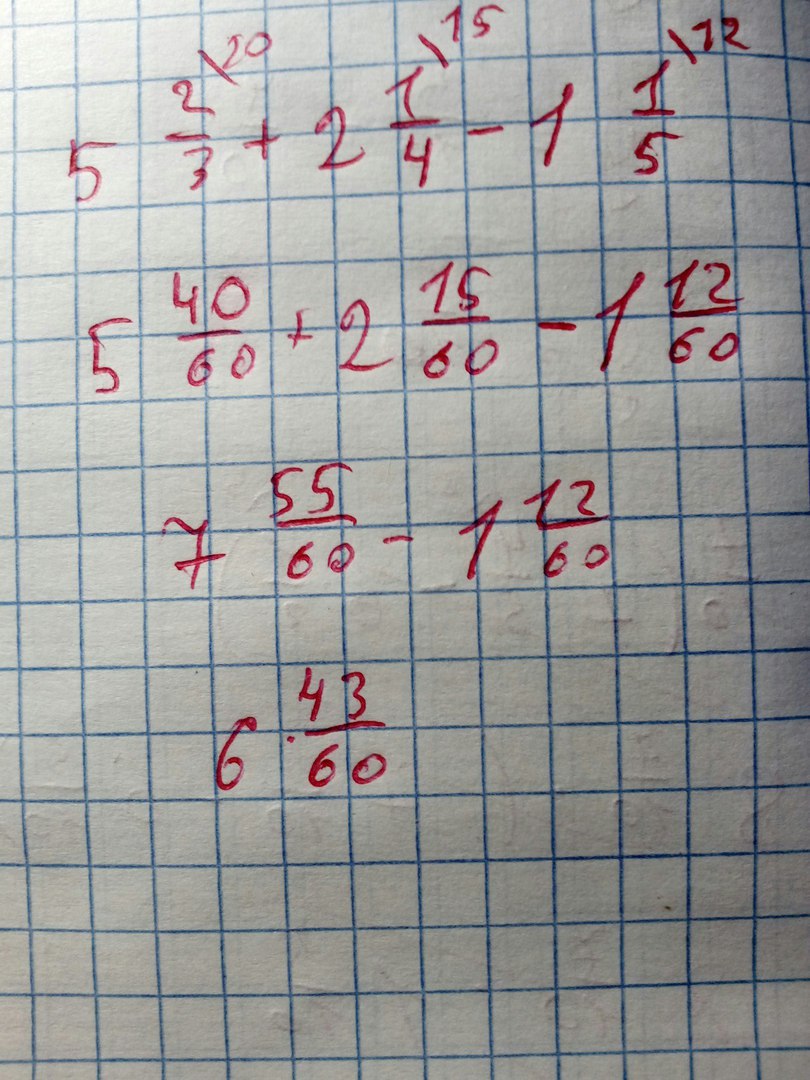 5 2/3 \20 + 2 1/4 \15 - 1 1/5 \12
5 40/60 + 2 15/60 - 1 12/60
7 55/60 - 1 12/60
6 43/60